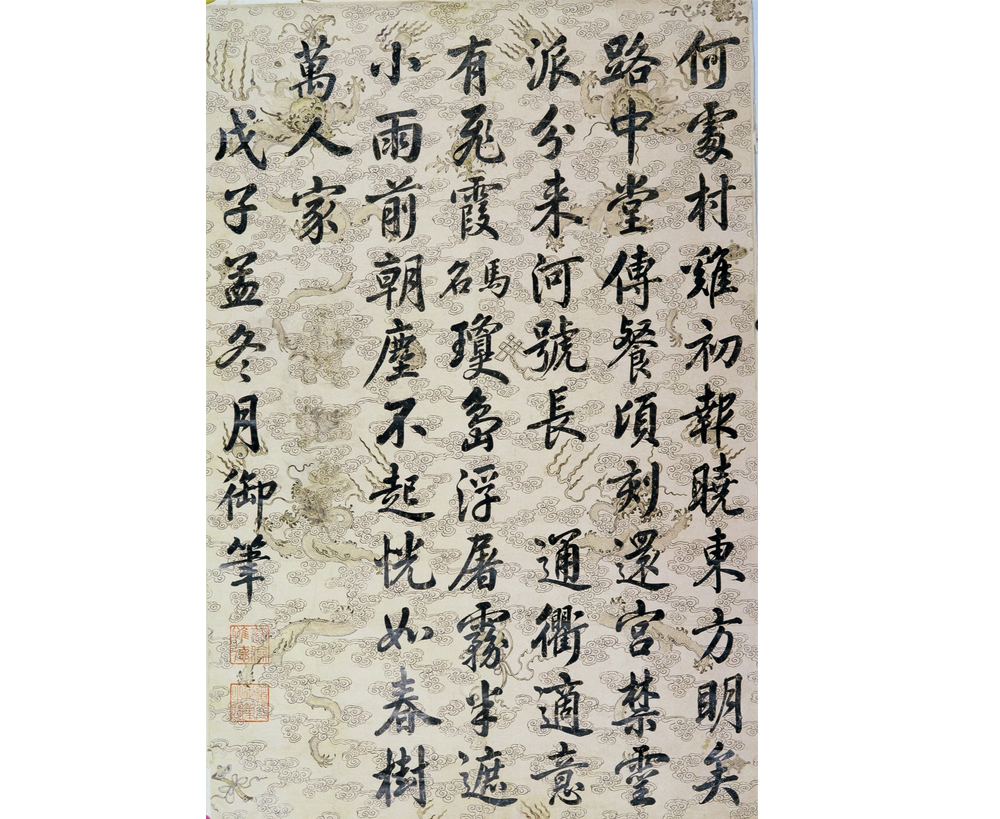 何處村雞初報曉東方明矣
路中堂傳餐頃刻還宮禁靈
派分来河號長 通衢適意
有飛霞馬名瓊島浮屠霧半遮
小雨前朝塵不起恍如春樹
萬人家
戊子孟冬月御筆